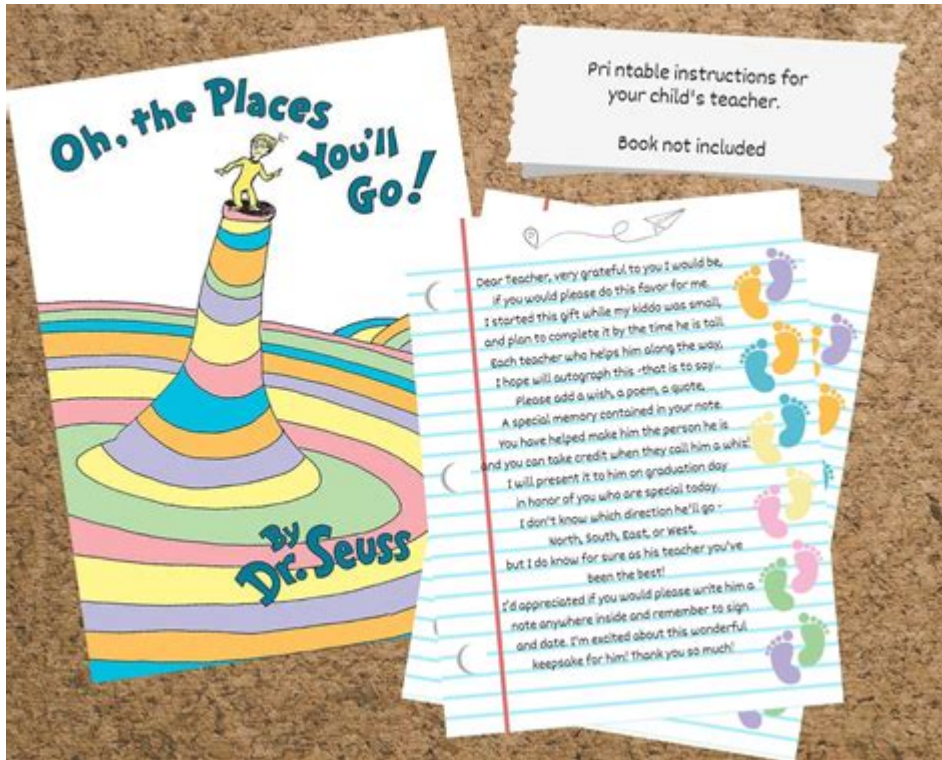 Oh, the Places
You'll
Go!
By
Dr. Seuss
Printable instructions for
your child's teacher.
Book not included
Dear Teacher, very grateful to you I would be,
if you would please do this favor for me.
I started this gift while my kiddo was small,
and plan to complete it by the time he is tall.
Each teacher who helps him along the way,
I hope will autograph this -that is to say...
Please add a wish, a poem, a quote,
A special memory contained in your note.
You have helped make him the person he is
and you can take credit when they call him a whiz!
I will present it to him on graduation day
in honor of you who are special today.
I don't know which direction he'll go -
North, South, East, or West,
but I do know for sure as his teacher you've
been the best!
I'd appreciated if you would please write him a
note anywhere inside and remember to sign
and date. I'm excited about this wonderful
keepsake for him! Thank you so much!